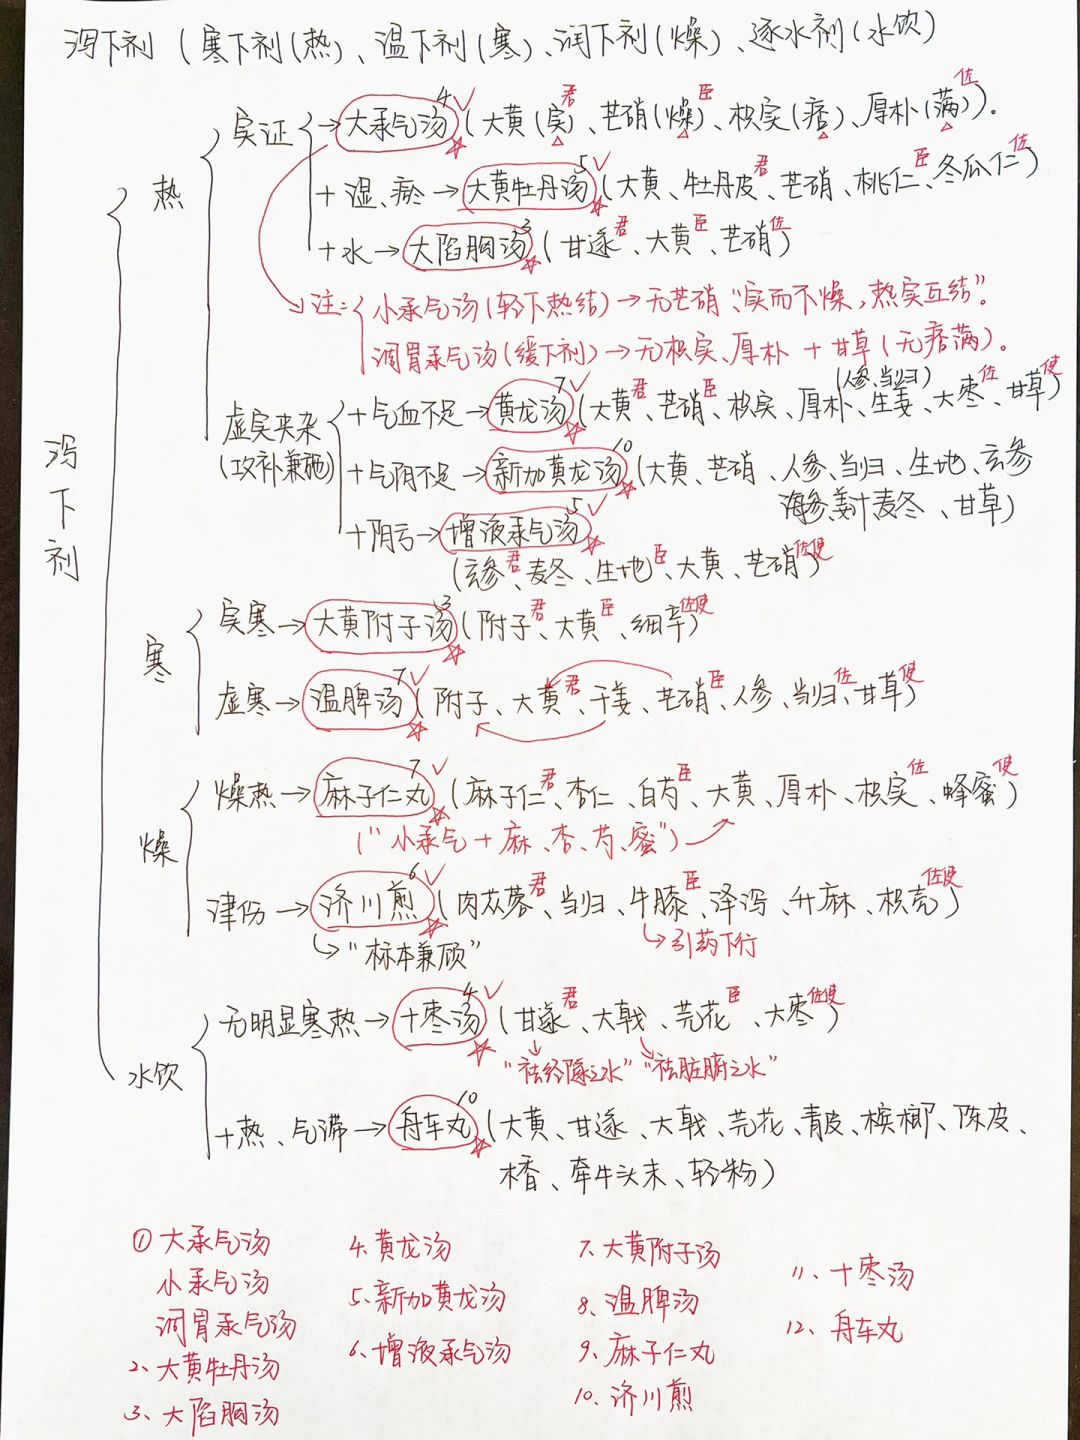 泻下剂（寒下剂(热)、温下剂(寒)、润下剂(燥)、逐水剂(水饮)
泻下剂
热
实证
→大承气汤4✓（大黄(实)君、芒硝(燥)臣、枳实(痞)、厚朴(满)佐）。
+湿、瘀→大黄牡丹汤5✓（大黄、牡丹皮君、芒硝、桃仁臣、冬瓜仁佐）
+水→大陷胸汤3（甘遂君、大黄臣、芒硝佐）
注：小承气汤(轻下热结)→无芒硝“实而不燥，热实互结”。
调胃承气汤(缓下剂)→无枳实、厚朴+甘草(无痞满)。
虚实夹杂
(攻补兼施)
(人参、当归)
+气血不足→黄龙汤7✓（大黄君、芒硝臣、枳实、厚朴、生姜、大枣佐、甘草使）
+气阴不足→新加黄龙汤10（大黄、芒硝、人参、当归、生地、玄参
海参、姜汁麦冬、甘草）
+阴亏→增液承气汤5✓
（玄参君、麦冬、生地臣、大黄、芒硝佐使）
寒
实寒→大黄附子汤3（附子君、大黄臣、细辛佐使）
虚寒→温脾汤7✓（附子、大黄君、干姜、芒硝臣、人参、当归佐、甘草使）
燥
燥热→麻子仁丸7✓（麻子仁君、杏仁、白芍臣、大黄、厚朴、枳实佐、蜂蜜使）
（“小承气+麻、杏、芍、蜜”）
津伤→济川煎6✓（肉苁蓉君、当归、牛膝臣、泽泻、升麻、枳壳佐使）
↳“标本兼顾”
↳引药下行
水饮
无明显寒热→十枣汤4✓（甘遂君、大戟、芫花臣、大枣佐使）
“祛经隧之水”“祛脏腑之水”
+热、气滞→舟车丸10（大黄、甘遂、大戟、芫花、青皮、槟榔、陈皮、
木香、牵牛头末、轻粉）
①大承气汤
小承气汤
调胃承气汤
2、大黄牡丹汤
3、大陷胸汤
4、黄龙汤
5、新加黄龙汤
6、增液承气汤
7、大黄附子汤
8、温脾汤
9、麻子仁丸
10、济川煎
11、十枣汤
12、舟车丸